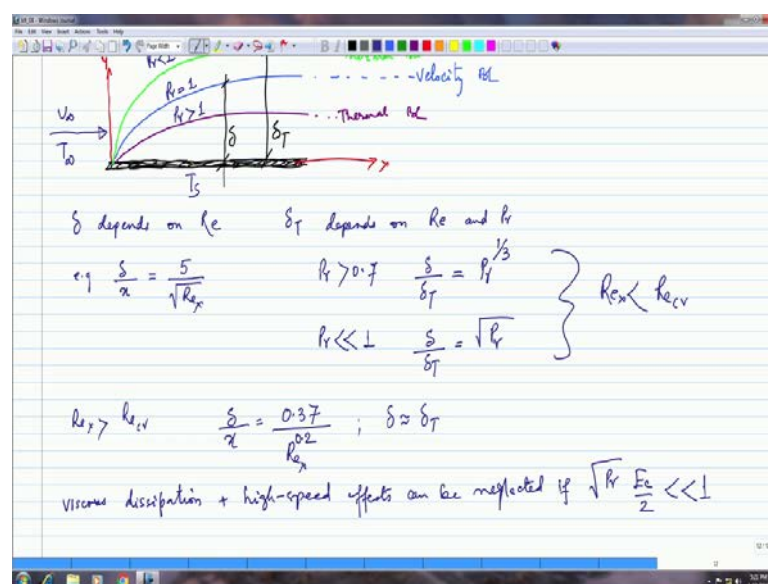 File Edit View Insert Actions Tools Help
Page Width
B I
Pr<1
y
Pr=1
Velocity BL
Pr>1
Thermal BL
V∞
T∞
δ
δT
x
Ts
δ depends on Re
δT depends on Re and Pr
e.g δ/x = 5/√Rex
Pr>0.7 δ/δT = Pr^1/3
Rex< Recr
Pr<<1 δ/δT = √Pr
Rex> Recr δ/x = 0.37/Rex^0.2 ; δ≈δT
viscous dissipation + high-speed effects can be neglected if √Pr Ec/2 <<1